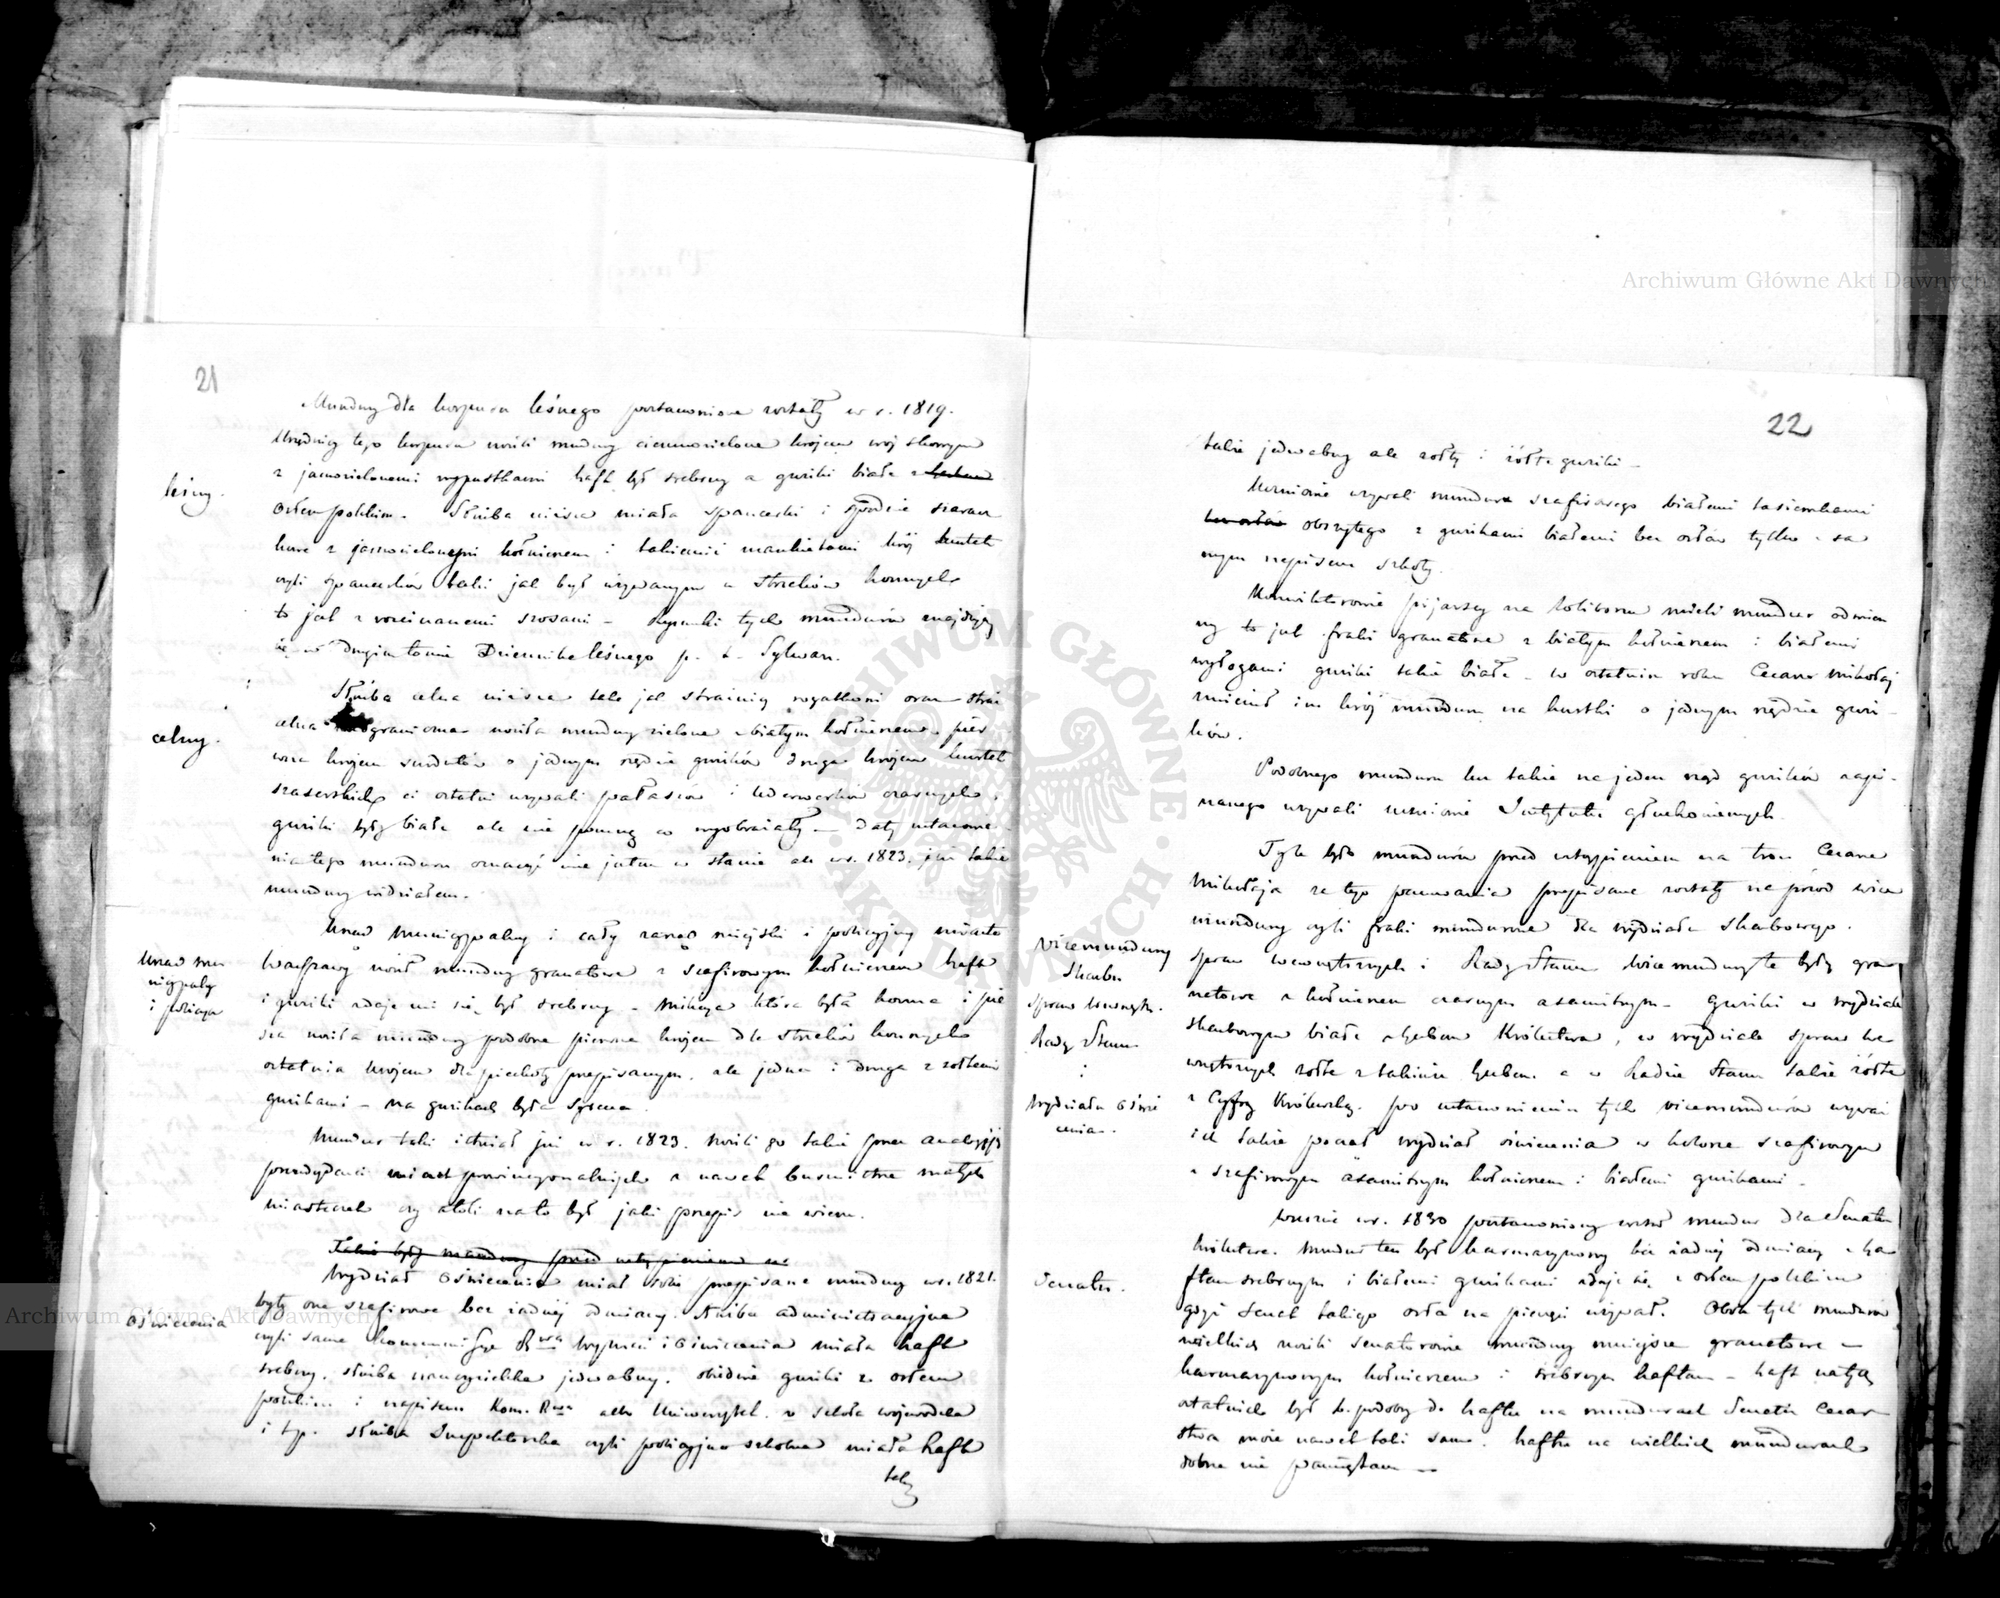 21
Mundury dla korpusu leśnego postanowione zostały w r. 1819.
Urzędnicy tego korpusu nosili mundury ciemnozielone krojem
z jasnozielonemi wypustkami haft był srebrny a guziki białe z
leśny.
Orłem polskim. Służba niższa miała spencerki i spodnie szaraw
kowe z jasnozielonemi kołnierzem i takiemiż mankietami krój kurtek
czyli spencerków taki jak był używanym u strzelców konnych
to jest z rozcinanemi szosami – Rysunki tych mundurów znajdują
się w drugim tomie Dziennika leśnego p. t. Sylwan.
Służba celna niższa tak jak strażnicy rogatkowi oraz straż
celna nadgraniczna nosiła mundury zielone z białym kołnierzem. pier
celny.
wsza krojem surdutów o jednym rzędzie guzików druga krojem kurtek
ci ostatni używali pałaszów i czarnych.
guziki były białe ale nie pomnę co wyobrażały – Daty ustanowie
nia tego munduru oznaczyć nie jestem w stanie ale w r. 1823. już takie
mundury widziałem.
Urząd Municypalny i cały zarząd miejski i policyjny miasta
Urząd mu
nicypalny
i policya
Warszawy nosił mundury granatowe z szafirowym kołnierzem haft
i guziki zdaje mi się był srebrny – milicya która była konna i pie
sza nosiła mundury podobne pierwsza krojem dla strzelców konnych
ostatnia krojem dla piechoty przepisanym. ale jedna i druga z żółtemi
guzikami – na guzikach była Syrena.
Mundur taki istniał już w r. 1823. nosili go także przez analogiją
prezydenci miast prowincyonalnych a nawet burmistrze małych
miasteczek czy atoli na to był jaki przepis nie wiem.
Takie były mundury przed wstąpieniem na
Wydział Oświecenia miał sobie przepisane mundury w r. 1821.
były one szafirowe bez żadnej odmiany. Służba administracyjna
Oświecenia
czyli sama Kommissya Rwa Wyznań i Oświecenia miała haft
srebrny. służba nauczycielska jedwabny. obiedwie guziki z orłem
polskim i napisem Kom. Rwa albo Uniwersytet. v Szkoła wojewódzka
i t.p. Służba Inspektorska czyli policyjno szkolna miała haft
także
22
także jedwabny ale żółty i żółte guziki –
Uczniowie używali munduru szafirowego białemi tasiemkami
bez orłów obszytego z guzikami białemi bez orłów tylko z sa
mym napisem szkoły.
Konwiktorowie pijarscy na Żoliborzu mieli mundur odmien
ny to jest fraki granatowe z białym kołnierzem i białemi
wyłogami guziki także białe – w ostatnim roku Cesarz Mikołaj
zmienił im krój munduru na kurtki o jednym rzędzie guzi-
ków.
Podobnego munduru bo także na jeden rząd guzików zapi-
nanego używali uczniowie Instytutu głuchoniemych.
Tyle było mundurów przed wstąpieniem na tron Cesarza
Mikołaja za tego panowania przepisane zostały naprzód wice
mundury czyli fraki mundurowe dla wydziału Skarbowego.
Vicemundury
Skarbu
spraw Wewnętr.
Rady Stanu
:
spraw wewnętrznych i Rady Stanu. Wicemundury te były gra
natowe z kołnierzem czarnym axamitnym – guziki w wydziale
skarbowym białe z herbem Królestwa, w wydziale spraw we
wnętrznych żółte z takimże herbem. a w Radzie Stanu także żółte
z Cyfrą Królewską. po ustanowieniu tych vicemundurów używać
Wydziału Oświe
cenia.
ich także począł wydział oświecenia w kolorze szafirowym
z szafirowym axamitnym kołnierzem i białemi guzikami –
Wreszcie w r. 1830 postanowiony został mundur dla Senatu
Królestwa. Mundur ten był karmazynowy bez żadnej odmiany z ha
Senatu.
ftem srebrnym i białemi guzikami zdaje się z orłem polskim
gdyż Senat takiego orła na pieczęci używał. Obok tych mundurów
wielkich nosili senatorowie mundury mniejsze granatowe z
karmazynowym kołnierzem i srebrnym haftem – haft na tych
ostatnich był b. podobny do haftu na mundurach Senatu Cesar
stwa może nawet taki sam. haftu na wielkich mundurach
dobrze nie pamiętam –
Archiwum Główne Akt Dawnych
Archiwum Główne Akt Dawnych
ARCHIWUM GŁÓWNE AKT DAWNYCH